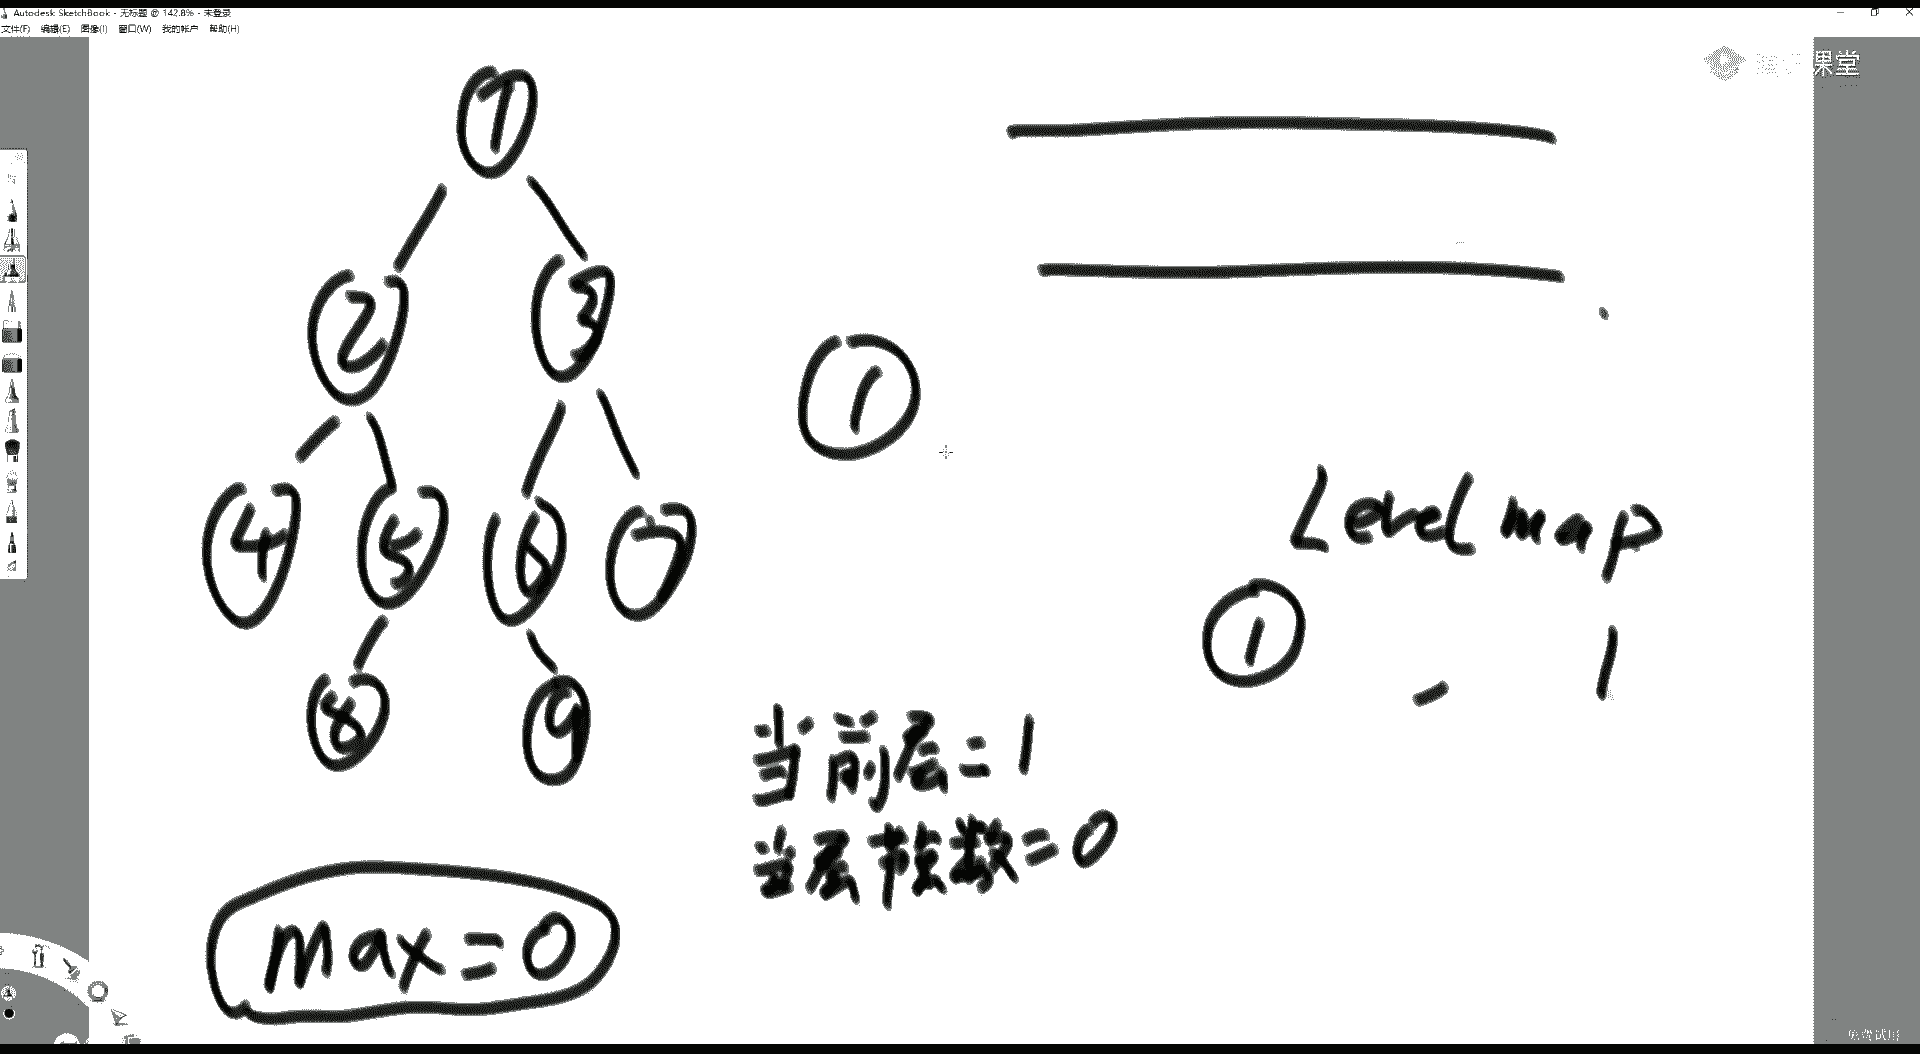 Autodesk SketchBook - 无标题 @ 142.8% - 未登录
文件(F) 编辑(E) 图像(I) 窗口(W) 我的帐户 帮助(H)
课堂
1
2 3
1
4 5 6 7
Level map
1 - 1
8 9
当前层=1
当层节点数=0
max=0
免费试用